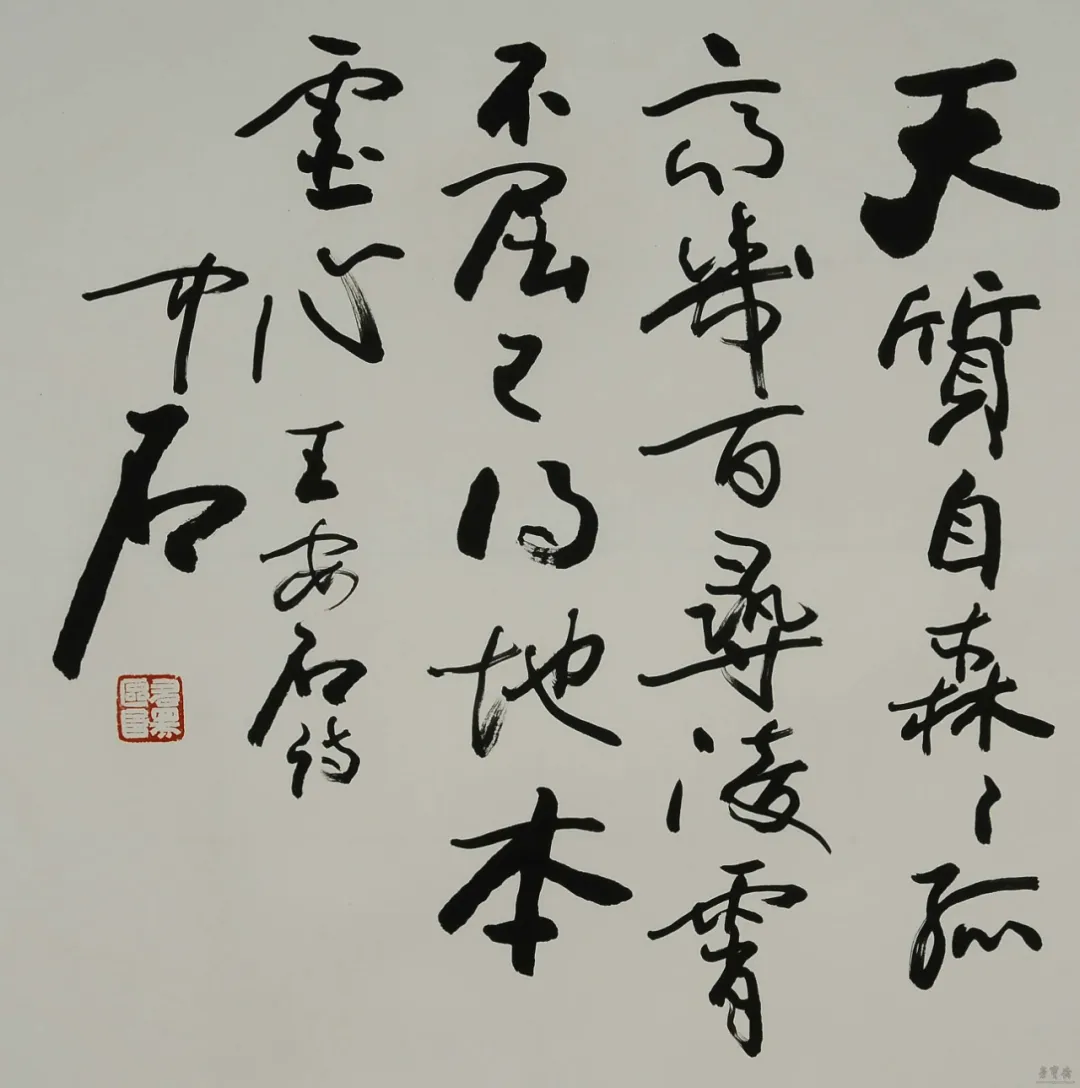 天質自森〻孤
高幾百尋凌霄
不屈己得地本
虚心 王安石詩
中石